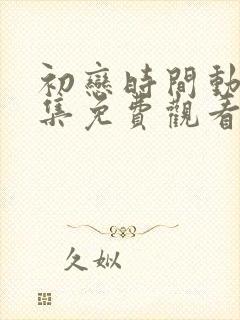 初戀時間動
集免費觀看
久姒